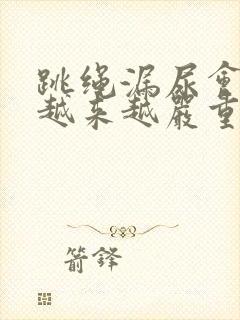 跳绳漏尿会
越来越严重
箭铎